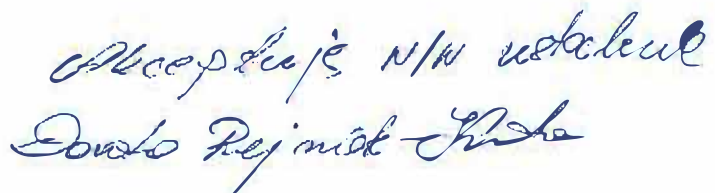 Akceptuję N/W ustalenia
Dorota Rejniak-